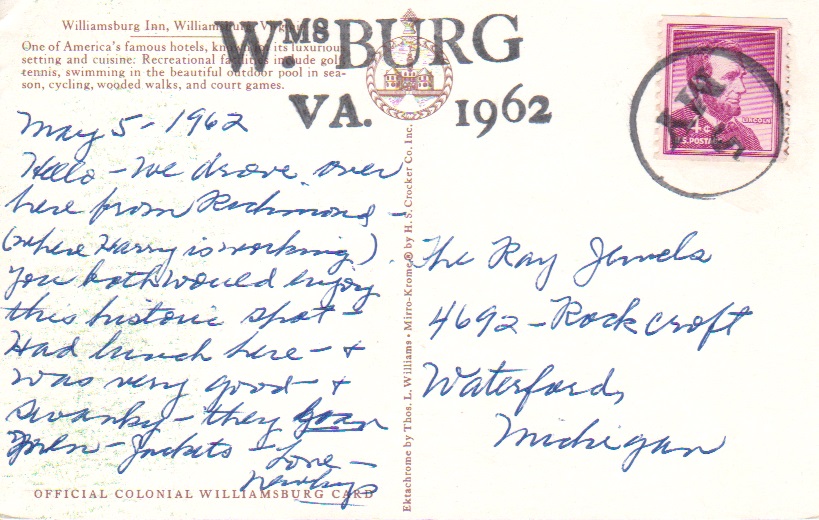 Williamsburg Inn, Williamsburg, Virginia
One of America's famous hotels, known for its luxurious
setting and cuisine. Recreational facilities include golf,
tennis, swimming in the beautiful outdoor pool in sea-
son, cycling, wooded walks, and court games.
WMS BURG
VA. 1962
MAY 5
LINCOLN
4¢
U.S. POSTAGE
May 5 - 1962
Hello - We drove over
here from Richmond -
(where Harry is working)
You both would enjoy
this historic spot -
Had lunch here - +
was very good - +
swanky - they loan
men - Jackets - Love -
Newbys
OFFICIAL COLONIAL WILLIAMSBURG CARD
Ektachrome by Thos. L. Williams • Mirro-Krome® by H. S. Crocker Co. Inc.
The Ray Jewels
4692 - Rockcroft
Waterford,
Michigan